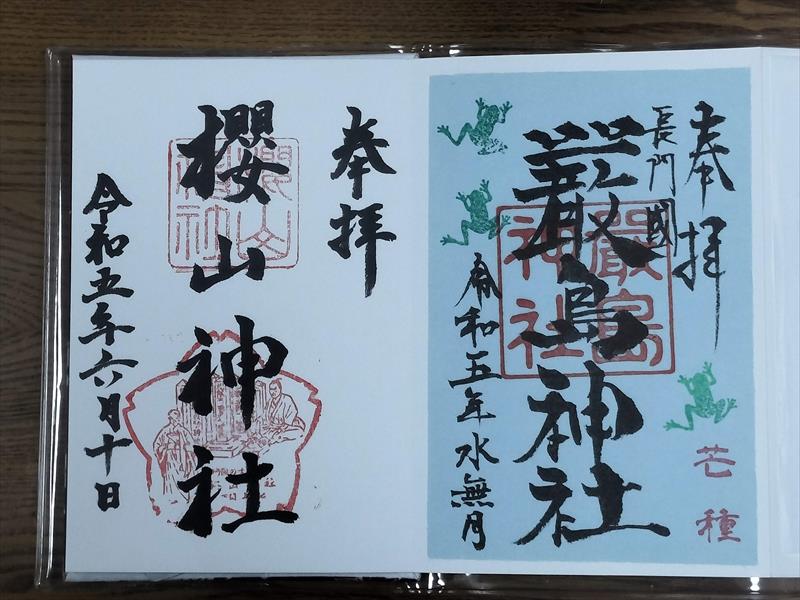 奉拝
長門國
嚴島神社
令和五年水無月
芒種
嚴島
神社
奉拝
櫻山神社
令和五年六月十日
櫻山
神社